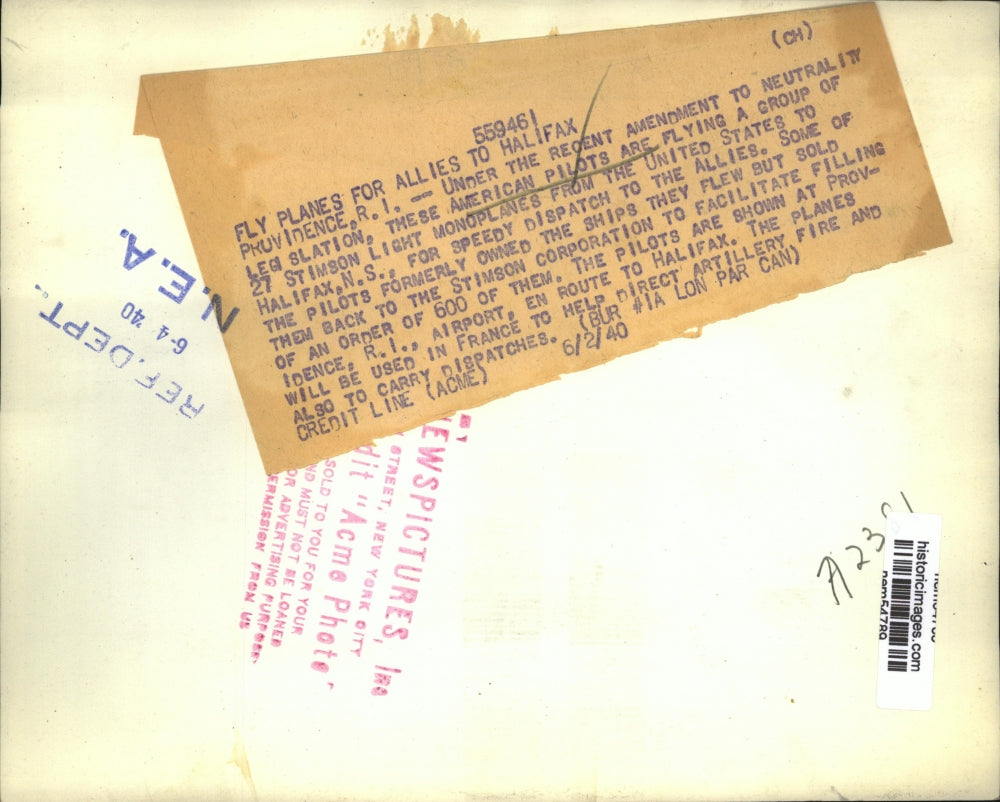 (CH)
559461
FLY PLANES FOR ALLIES TO HALIFAX
PROVIDENCE, R.I. -- UNDER THE RECENT AMENDMENT TO NEUTRALITY
LEGISLATION, THESE AMERICAN PILOTS ARE FLYING A GROUP OF
27 STIMSON LIGHT MONOPLANES FROM THE UNITED STATES TO
HALIFAX, N.S., FOR SPEEDY DISPATCH TO THE ALLIES. SOME OF
THE PILOTS FORMERLY OWNED THE SHIPS THEY FLEW BUT SOLD
THEM BACK TO THE STIMSON CORPORATION TO FACILITATE FILLING
OF AN ORDER OF 600 OF THEM. THE PILOTS ARE SHOWN AT PROV-
IDENCE, R.I., AIRPORT, EN ROUTE TO HALIFAX. THE PLANES
WILL BE USED IN FRANCE TO HELP DIRECT ARTILLERY FIRE AND
ALSO TO CARRY DISPATCHES. (BUR #1A LON PAR CAN)
CREDIT LINE (ACME) 6/2/40
N.E.A.
6-4 '40
REF. DEPT..
EWSPICTURES, Inc
STREET, NEW YORK CITY
dit "Acme Photo"
SOLD TO YOU FOR YOUR
ND MUST NOT BE LOANED
OR ADVERTISING PURPOSE
ERMISSION FROM US
A23
historicimages.com
nem54789